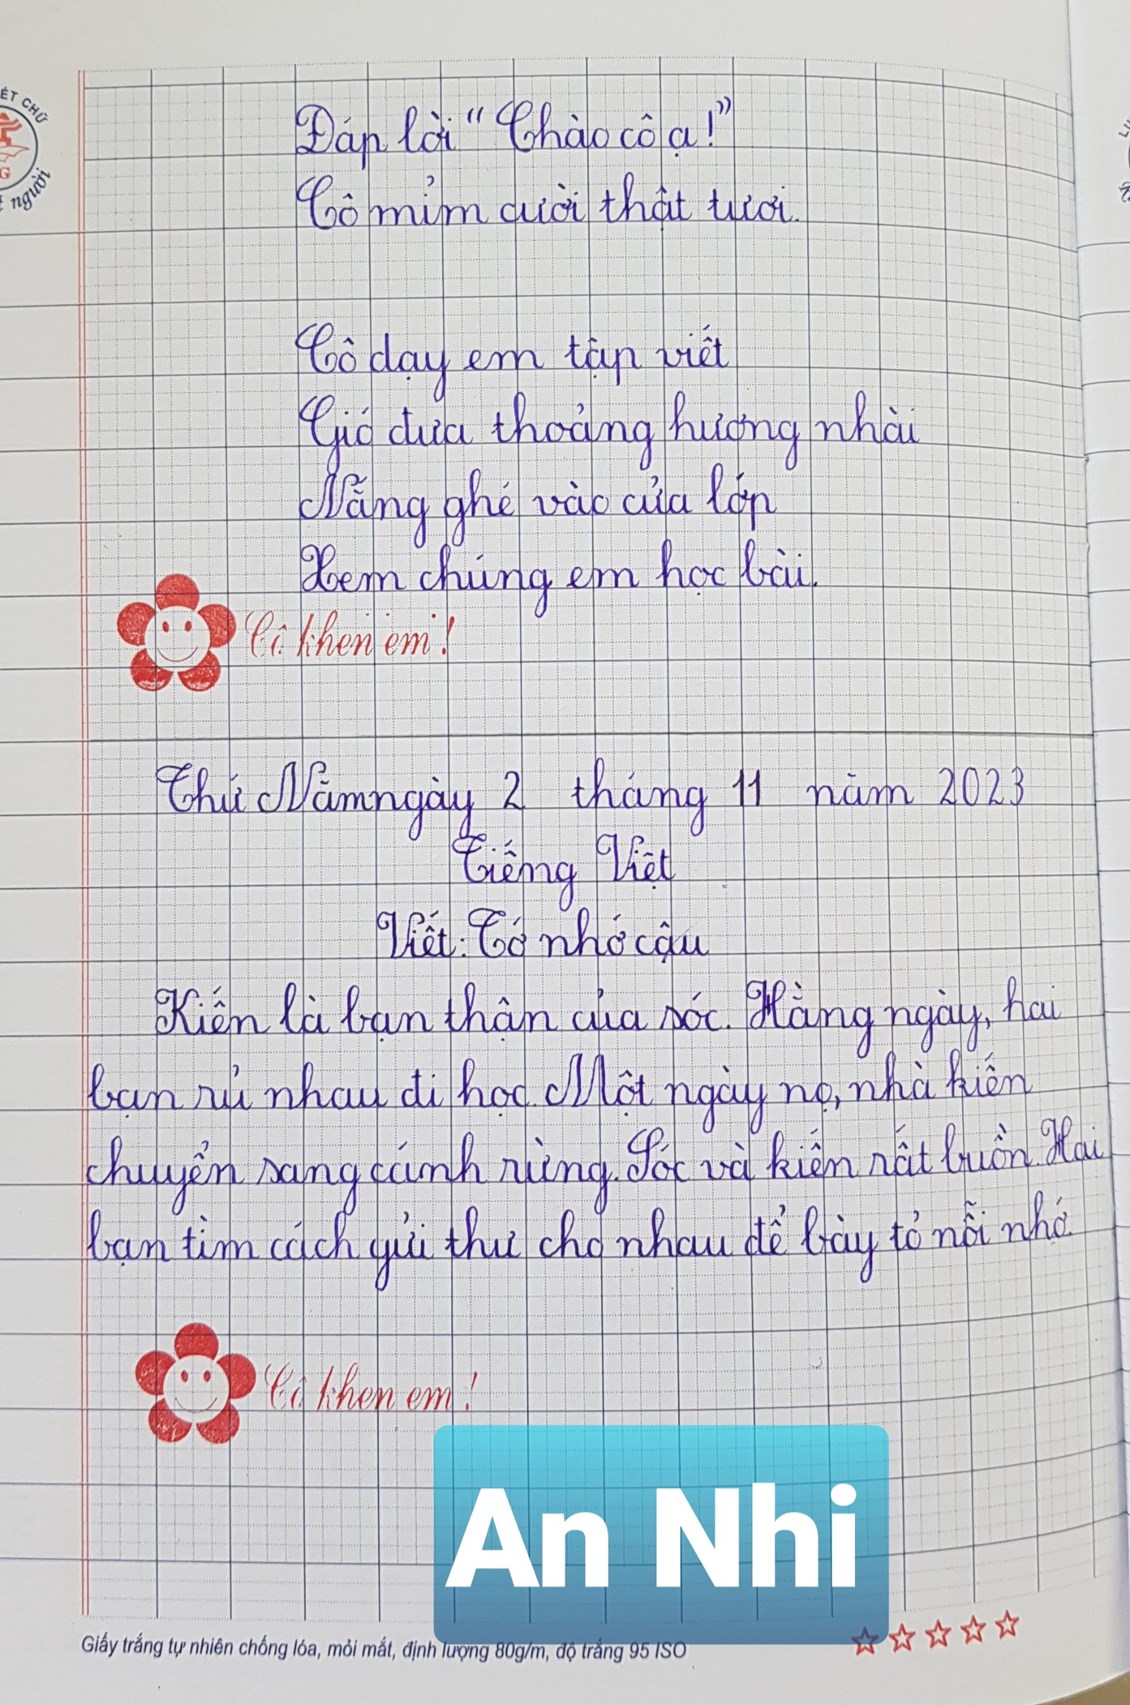 ẾT CHỮ
người
Đáp lời “Chào cô ạ!”
Cô mỉm cười thật tươi.
Cô dạy em tập viết
Gió đưa thoảng hương nhài
Nắng ghé vào cửa lớp
Xem chúng em học bài.
Cô khen em!
Thứ Năm ngày 2 tháng 11 năm 2023
Tiếng Việt
Viết: Tớ nhớ cậu
Kiến là bạn thân của sóc. Hằng ngày, hai
bạn rủ nhau đi học. Một ngày nọ, nhà kiến
chuyển sang cánh rừng. Sóc và kiến rất buồn. Hai
bạn tìm cách gửi thư cho nhau để bày tỏ nỗi nhớ.
Cô khen em!
An Nhi
Giấy trắng tự nhiên chống lóa, mỏi mắt, định lượng 80g/m, độ trắng 95 ISO